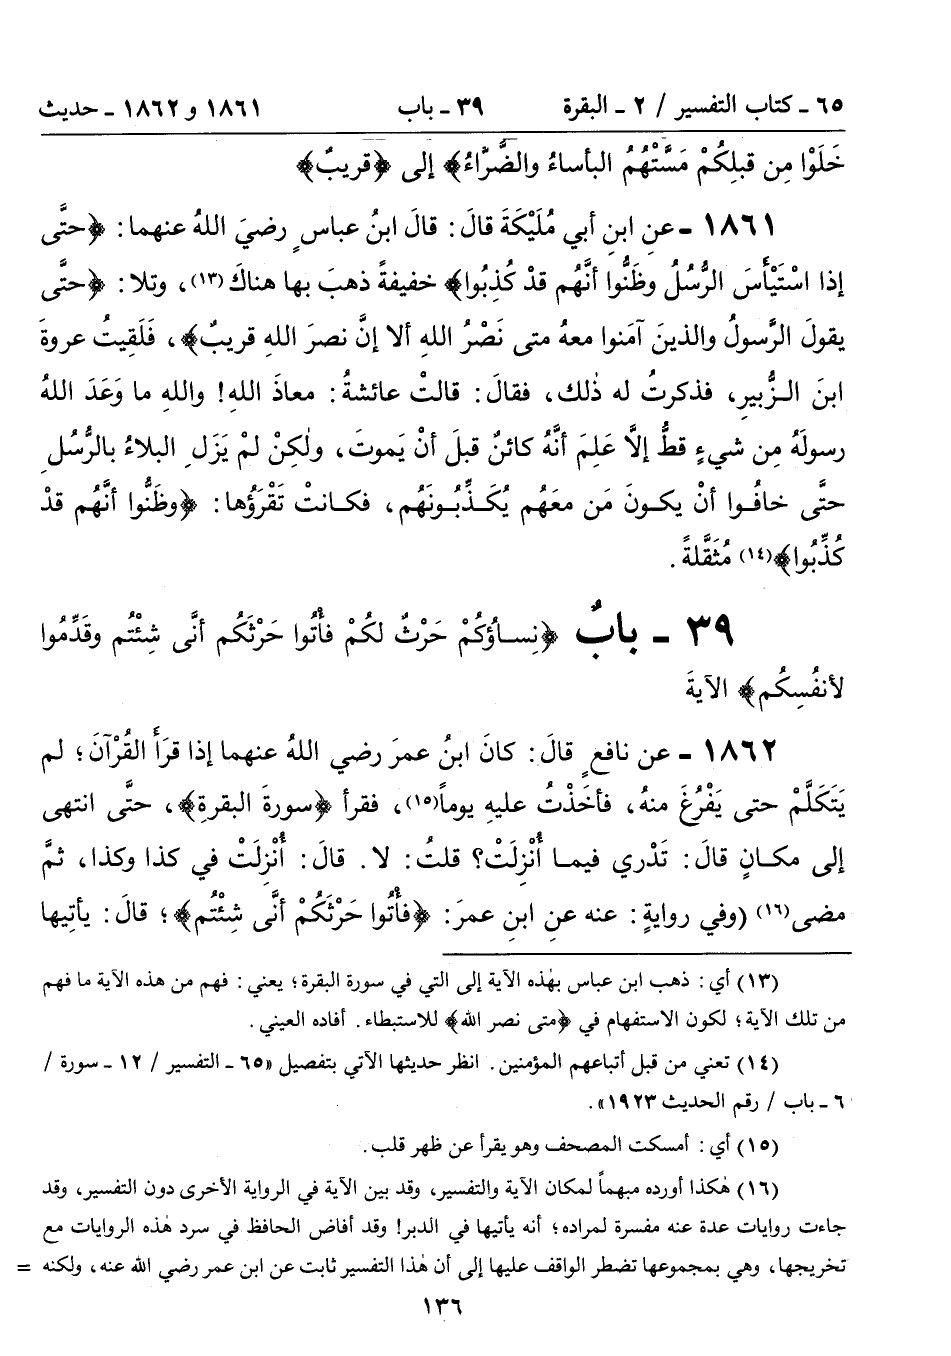 ٦٥ - كتاب التفسير / ٢ - البقرة ٣٩ - باب ١٨٦١ و ١٨٦٢ - حديث
خَلَوْا مِن قبلِكُمْ مَسَّتْهُمُ البأساءُ والضَّرَّاءُ﴾ إلى ﴿قريبٌ﴾
١٨٦١ - عنِ ابنِ أبي مُلَيْكَةَ قالَ: قالَ ابنُ عباسٍ رضيَ اللهُ عنهما: ﴿حتَّى
إذا اسْتَيْأَسَ الرُّسُلُ وظَنُّوا أنَّهُم قدْ كُذِبُوا﴾ خفيفةً ذهبَ بها هناكَ(١٣)، وتلا: ﴿حتَّى
يقولَ الرَّسولُ والذينَ آمَنوا معهُ متى نَصْرُ اللهِ ألا إنَّ نصرَ اللهِ قريبٌ﴾، فَلَقِيتُ عروةَ
ابنَ الزُّبيرِ، فذكرتُ له ذٰلك، فقالَ: قالتْ عائشةُ: معاذَ اللهِ! واللهِ ما وَعَدَ اللهُ
رسولَهُ مِن شيءٍ قطُّ إلَّا عَلِمَ أنَّهُ كائنٌ قبلَ أنْ يَموتَ، ولٰكِنْ لمْ يَزَلِ البلاءُ بالرُّسُلِ
حتَّى خافُوا أنْ يكونَ مَن معَهُم يُكَذِّبُونَهُم، فكانتْ تَقْرَؤُها: ﴿وظَنُّوا أنَّهُم قدْ
كُذِّبُوا﴾(١٤) مُثَقَّلةً.
٣٩ - بابٌ ﴿نِساؤُكُمْ حَرْثٌ لكُمْ فأْتُوا حَرْثَكُم أنَّى شِئْتُم وقَدِّمُوا
لأنفُسِكُم﴾ الآيةَ
١٨٦٢ - عن نافعٍ قالَ: كانَ ابنُ عمرَ رضي اللهُ عنهما إذا قرَأَ القُرْآنَ؛ لم
يَتَكَلَّمْ حتى يَفْرُغَ منهُ، فأخَذْتُ عليهِ يوماً(١٥)، فقرأ ﴿سورةَ البقرةِ﴾، حتَّى انتهى
إلى مكانٍ قالَ: تَدْري فيما أُنْزِلَتْ؟ قلتُ: لا. قالَ: أُنْزِلَتْ في كذا وكذا، ثمَّ
مضى(١٦) (وفي روايةٍ: عنه عنِ ابنِ عمرَ: ﴿فأْتُوا حَرْثَكُمْ أنَّى شِئْتُم﴾؛ قالَ: يأتِيها
(١٣) أي: ذهب ابن عباس بهٰذه الآية إلى التي في سورة البقرة؛ يعني: فهم من هذه الآية ما فهم
من تلك الآية؛ لكون الاستفهام في ﴿متى نصر الله﴾ للاستبطاء. أفاده العيني.
(١٤) تعني من قبل أتباعهم المؤمنين. انظر حديثها الآتي بتفصيل «٦٥ - التفسير / ١٢ - سورة /
٦ - باب / رقم الحديث ١٩٢٣».
(١٥) أي: أمسكت المصحف وهو يقرأ عن ظهر قلب.
(١٦) هٰكذا أورده مبهماً لمكان الآية والتفسير، وقد بين الآية في الرواية الأخرى دون التفسير، وقد
جاءت روايات عدة عنه مفسرة لمراده؛ أنه يأتيها في الدبر! وقد أفاض الحافظ في سرد هٰذه الروايات مع
تخريجها، وهي بمجموعها تضطر الواقف عليها إلى أن هٰذا التفسير ثابت عن ابن عمر رضي الله عنه، ولكنه =
١٣٦